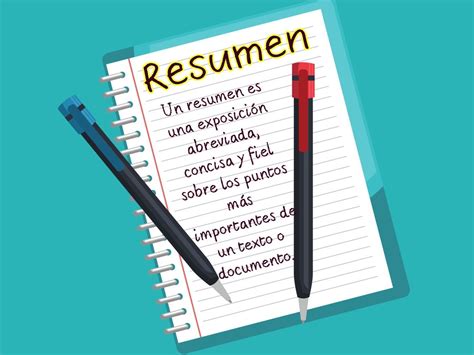 Resumen
Un resumen es
una exposición
abreviada,
concisa y fiel
sobre los puntos
más
importantes de
un texto o
documento.